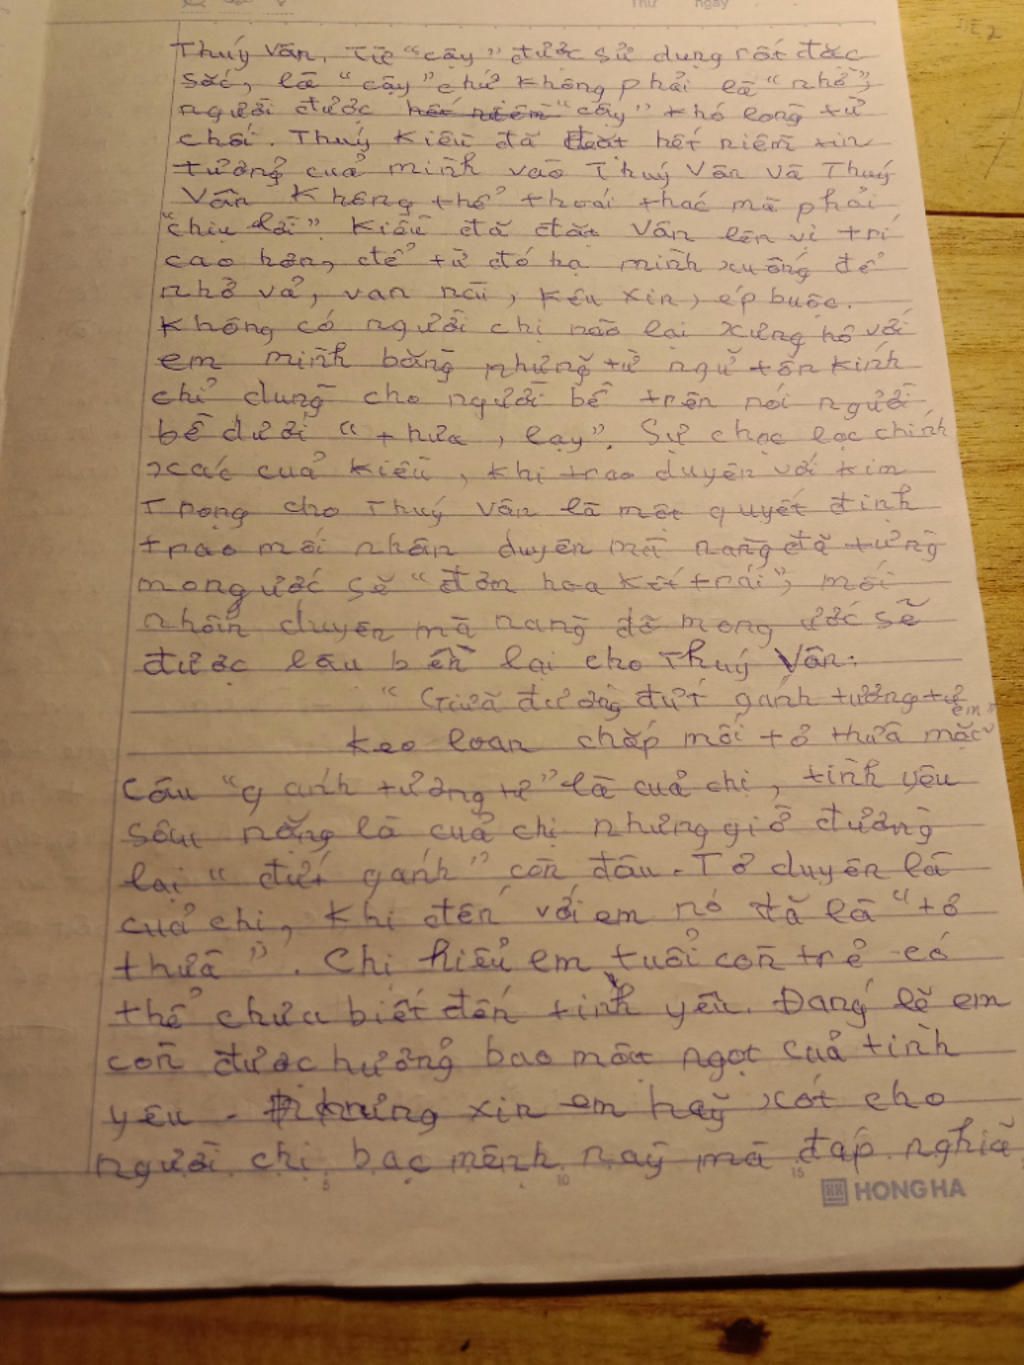 Thứ ngày
Thúy Vân, Từ "cậy" được sử dụng rất đặc
sắc, là "cậy" chứ không phải là "nhờ",
người được hết niềm "cậy" khó lòng từ
chối. Thuý Kiều đã đặt hết niềm tin
tưởng của mình vào Thuý Vân và Thuý
Vân không thể thoái thác mà phải
"chịu lời". Kiều đã đặt Vân lên vị trí
cao hơn, để từ đó hạ mình xuống để
nhờ vả, van nài, kêu xin, ép buộc.
Không có người chị nào lại xưng hô với
em mình bằng những từ ngữ tôn kính
chỉ dùng cho người bề trên nói người
bề dưới "thưa, lạy". Sự chọc lọc chính
xác của Kiều, khi trao duyên với Kim
Trọng cho Thuý Vân là một quyết định
trao mối nhân duyên mà nàng đã từng
mong ước sẽ "đơm hoa kết trái", mối
nhân duyên mà nàng đã mong ước sẽ
được lâu bền lại cho Thuý Vân:
"Giữa đường đứt gánh tương tư
Keo loan chắp mối tơ thừa mặc em"
Câu "gánh tương tư" là của chị, tình yêu
sâu nặng là của chị nhưng giờ đường
lại "đứt gánh" còn đâu. Tơ duyên là
của chị, khi đến với em nó đã là "tơ
thừa". Chị hiểu em tuổi còn trẻ có
thể chưa biết đến tình yêu. Đáng lẽ em
còn được hưởng bao mật ngọt của tình
yêu. nhưng xin em hãy xót cho
người chị bạc mệnh này mà đáp nghĩa
5 10 15
HONG HA